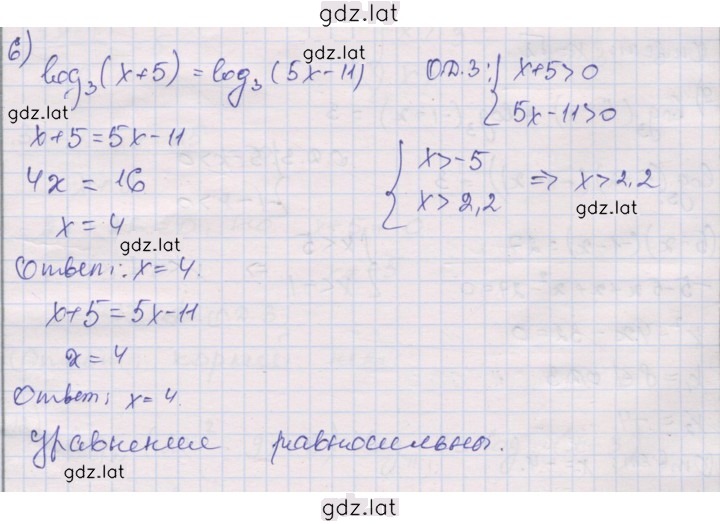 gdz.lat
б)
log₃(x+5) = log₃(5x-11) О.Д.З: { x+5>0
gdz.lat
5x-11>0
gdz.lat
x+5=5x-11
4x = 16
{ x>-5
x>2,2 ⇒ x>2,2
gdz.lat
x=4
gdz.lat
Ответ: x=4.
x+5=5x-11
x=4
Ответ: x=4.
gdz.lat
уравнение равносильны.
gdz.lat
gdz.lat